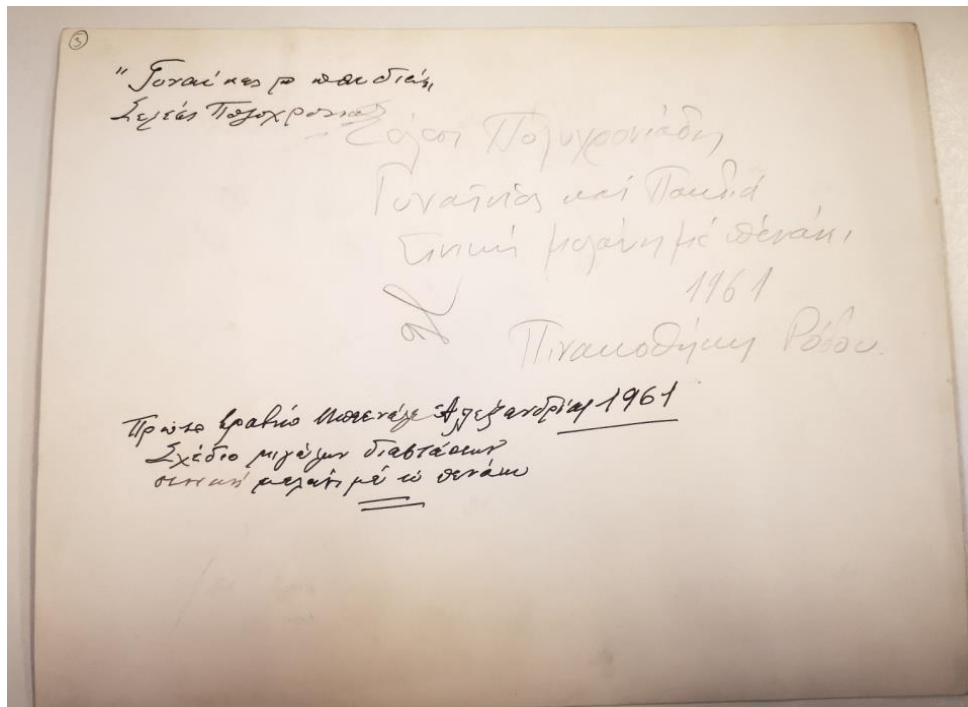 3
"Γυναίκες με παιδιά,
Σελέστ Πολυχρονιάδη
Σέλεστ Πολυχρονιάδη
Γυναῖκες καί Παιδιά
Σινική μελάνη μέ πενάκι,
1961
Πινακοθήκη Ρόδου.
Πρῶτο βραβεῖο Μπιενάλε Ἀλεξανδρείας 1961
Σχέδιο μεγάλων διαστάσεων
σινική μελάνι μέ τό πενάκι